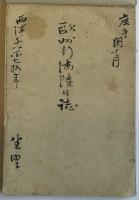 庚午閏十月
欧州行海陸日誌
西洋千八百七拾年